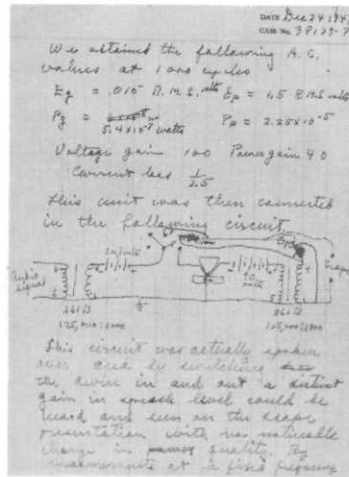 DATE Dec 24 1947
CASE No. 38139-7
We obtained the following A.C.
values at 1000 cycles
Eg = .015 R.M.S. volts Ep = 1.5 R.M.S. volts
Pg = 5.4 x 10^-7 watts Pp = 2.25 x 10^-5
Voltage gain 100 Power gain 40
Current loss 1/2.5
This unit was then connected
in the following circuit
261B 261B
125,000:1000
This circuit was actually spoken
over and by switching
the device in and out a distinct
gain in speech level could be
heard and seen on the scope
presentation with no noticeable
change in quality. By
measurements at a fixed frequency